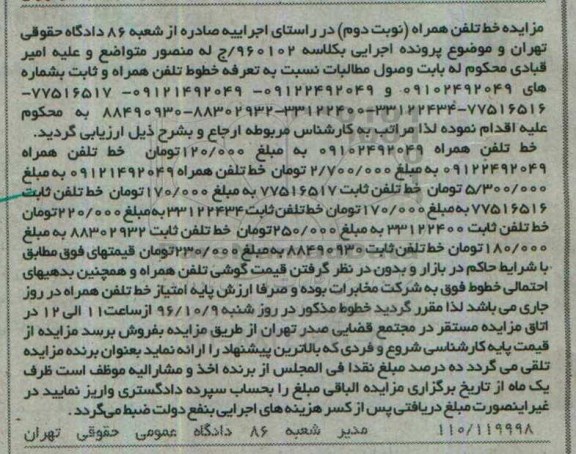 مزایده خط تلفن همراه (نوبت دوم) در راستای اجراییه صادره از شعبه ۸۶ دادگاه حقوقی
تهران و موضوع پرونده اجرایی بکلاسه ۹۶۰۱۰۲/ج له منصور متواضع و علیه امیر
قبادی محکوم له بابت وصول مطالبات نسبت به تعرفه خطوط تلفن همراه و ثابت بشماره
های ۰۹۱۰۲۴۹۲۰۴۹ و ۰۹۱۲۲۴۹۲۰۴۹- ۰۹۱۲۱۴۹۲۰۴۹- ۷۷۵۱۶۵۱۷-
۷۷۵۱۶۵۱۶-۳۳۱۲۲۴۳۴-۳۳۱۲۲۴۰۰-۸۸۳۰۲۹۳۲-۸۸۴۹۰۹۳۰ به محکوم
علیه اقدام نموده لذا مراتب به کارشناس مربوطه ارجاع و بشرح ذیل ارزیابی گردید.
خط تلفن همراه ۰۹۱۰۲۴۹۲۰۴۹ به مبلغ ۱۲۰/۰۰۰تومان خط تلفن همراه
۰۹۱۲۲۴۹۲۰۴۹ به مبلغ ۲/۷۰۰/۰۰۰ تومان خط تلفن همراه ۰۹۱۲۱۴۹۲۰۴۹ به مبلغ
۵/۳۰۰/۰۰۰ تومان خط تلفن ثابت ۷۷۵۱۶۵۱۷ به مبلغ ۱۷۰/۰۰۰تومان خط تلفن ثابت
۷۷۵۱۶۵۱۶ به مبلغ ۱۷۰/۰۰۰تومان خط تلفن ثابت ۳۳۱۲۲۴۳۴ به مبلغ ۲۲۰/۰۰۰تومان
خط تلفن ثابت ۳۳۱۲۲۴۰۰ به مبلغ ۲۵۰/۰۰۰تومان خط تلفن ثابت ۸۸۳۰۲۹۳۲ به مبلغ
۱۸۰/۰۰۰تومان خط تلفن ثابت ۸۸۴۹۰۹۳۰ به مبلغ ۲۳۰/۰۰۰تومان قیمتهای فوق مطابق
با شرایط حاکم در بازار و بدون در نظر گرفتن قیمت گوشی تلفن همراه و همچنین بدهیهای
احتمالی خطوط فوق به شرکت مخابرات بوده و صرفا ارزش پایه امتیاز خط تلفن همراه در روز
جاری می باشد لذا مقرر گردید خطوط مذکور در روز شنبه ۹۶/۱۰/۹ ازساعت۱۱ الی ۱۲ در
اتاق مزایده مستقر در مجتمع قضایی صدر تهران از طریق مزایده بفروش برسد مزایده از
قیمت پایه کارشناسی شروع و فردی که بالاترین پیشنهاد را ارائه نماید بعنوان برنده مزایده
تلقی می گردد ده درصد مبلغ نقدا فی المجلس از برنده اخذ و مشارالیه موظف است ظرف
یک ماه از تاریخ برگزاری مزایده الباقی مبلغ را بحساب سپرده دادگستری واریز نمایید در
غیر اینصورت مبلغ دریافتی پس از کسر هزینه های اجرایی بنفع دولت ضبط می گردد.
۱۱۰/۱۱۹۹۹۸ مدیر شعبه ۸۶ دادگاه عمومی حقوقی تهران